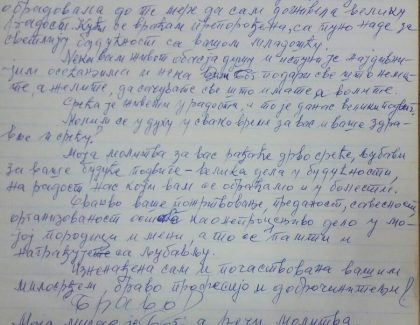 обрадовала до те мере да сам доживела велику
радост. Кући се враћам препорођена, са пуно наде за
светлију будућност са вашом младошћу.
Нека вам живот обасја душу и испуни је најдивни-
јим осећањима и нека вам бог подари све што неми-
те, а желите, да сачувате све што имате а волите.
Срећа је живети у радости, и то је данас велики подвиг.
Молим се у духу у свако време за вас и ваше здра-
вље и срећу?
Моја молитва за вас рађаће дрво среће, љубави
за ваше будуће подвиге - велика дела у будућности,
на радост нас који вам се обраћамо и у болести.
Овакво ваше пожртвовање, преданост, савесност,
организованост оста као непроцењиво дело у мо-
јој породици и мени, а то се памти и
награђује са љубављу.
Изненађена сам и почаствована вашим
милосрђем, браво професију и доброчинитељи!
(Браво)
Моја мисао је Бог, а речи молитва